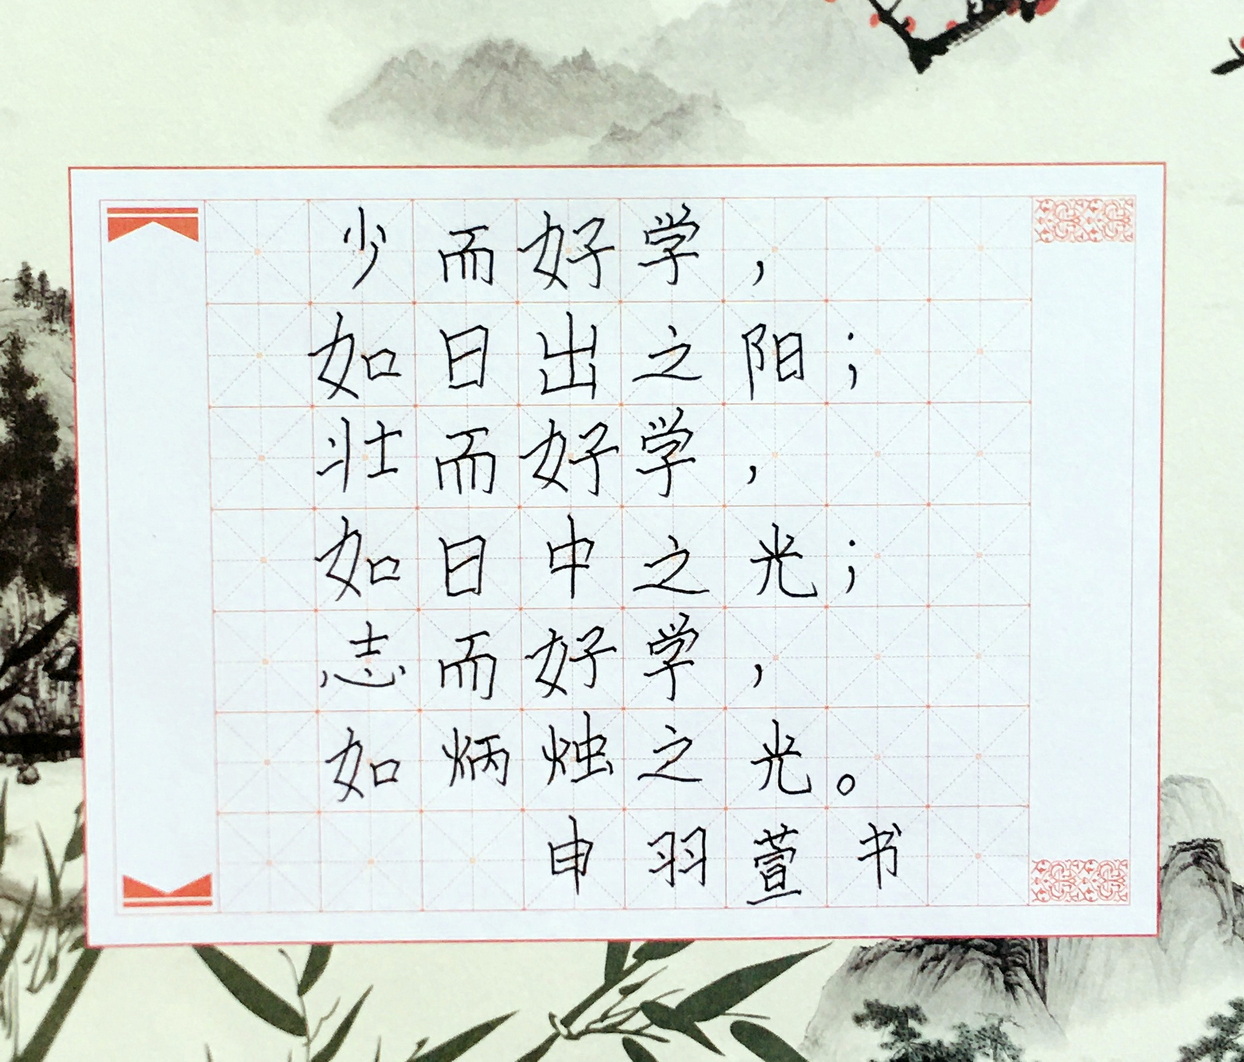 少而好学，
如日出之阳；
壮而好学，
如日中之光；
志而好学，
如炳烛之光。
申羽萱书